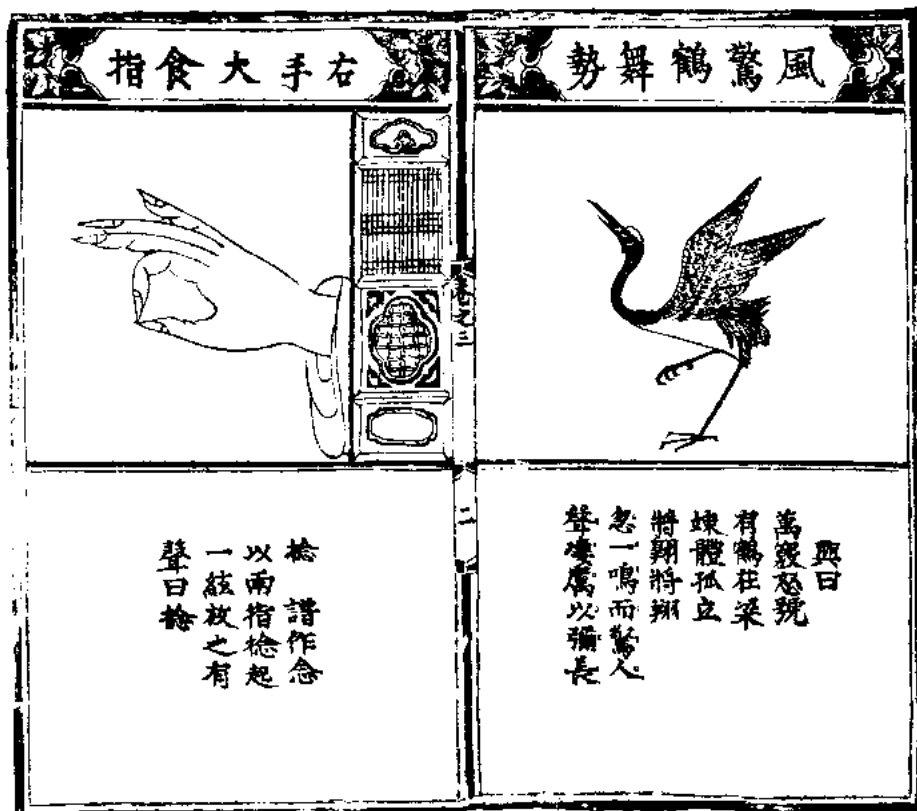 風驚鶴舞勢
興曰
萬竅怒號
有鶴在梁
竦體孤立
將翺將翔
忽一鳴而驚人
聲凄厲以彌長
卷之三
二
右手大食指
捻　譜作念
以兩指捻起
一絃放之有
聲曰捻